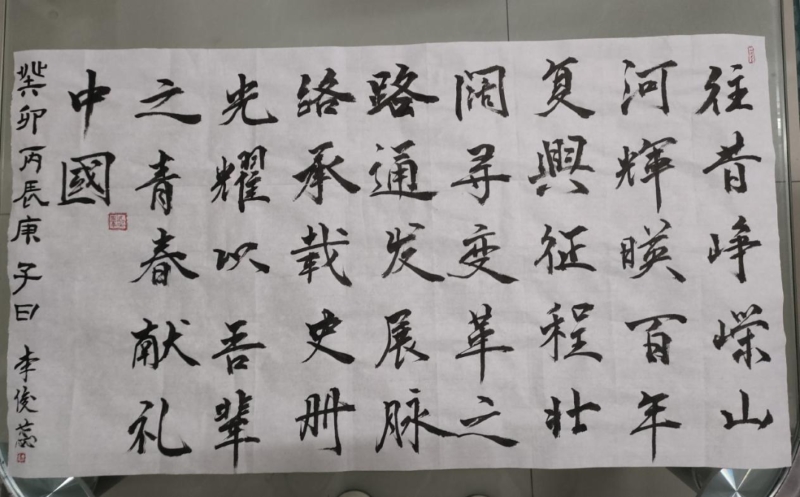 往昔峥嵘山
河輝暎百年
复興征程壮
阔寻变革之
路通发展脉
络承载史册
光耀以吾輩
之青春献礼
中國
癸卯丙辰庚子日 李俊